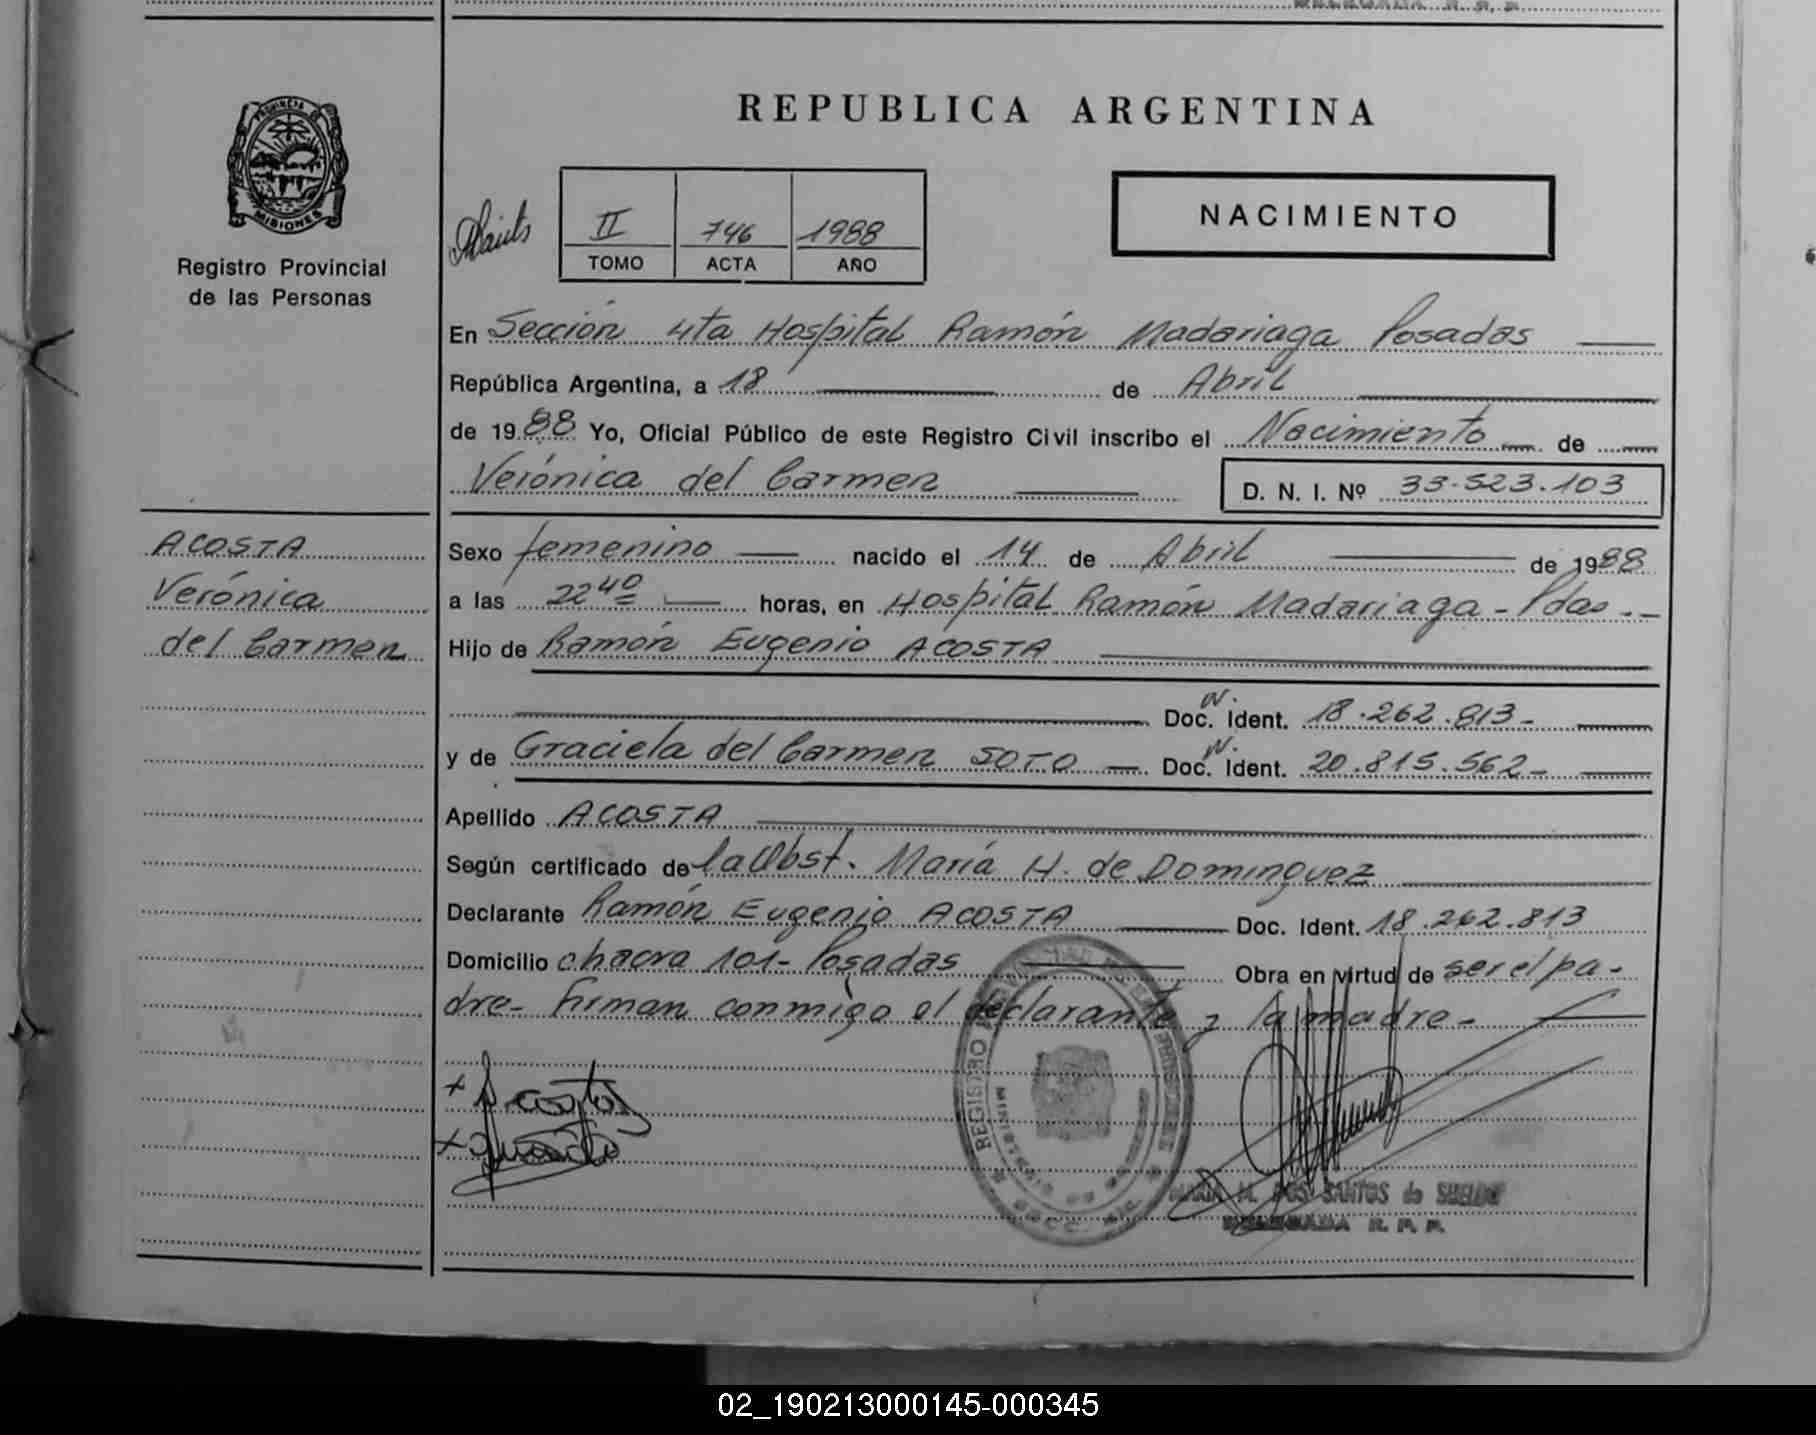 REPUBLICA ARGENTINA
PROVINCIA DE
MISIONES
Registro Provincial
de las Personas
II 746 1988
TOMO ACTA AÑO
NACIMIENTO
En Sección 4ta Hospital Ramón Madariaga Posadas
República Argentina, a 18 de Abril
de 1988 Yo, Oficial Público de este Registro Civil inscribo el Nacimiento de
Verónica del Carmen D. N. I. Nº 33.523.103
ACOSTA
Verónica
del Carmen
Sexo femenino nacido el 14 de Abril de 1988
a las 22 40 horas, en Hospital Ramón Madariaga - Pdas.-
Hijo de Ramón Eugenio ACOSTA
Doc. N. Ident. 18.262.813-
y de Graciela del Carmen SOTO Doc. N. Ident. 20.815.562-
Apellido ACOSTA
Según certificado de la Obst. María H. de Dominguez
Declarante Ramón Eugenio ACOSTA Doc. Ident. 18.262.813
Domicilio chacra 101- Posadas Obra en virtud de ser el pa-
dre- Firman conmigo el declarante y la madre-
REGISTRO
MARIA M. DOS SANTOS de
DELEGADA R. P. P.
02_190213000145-000345